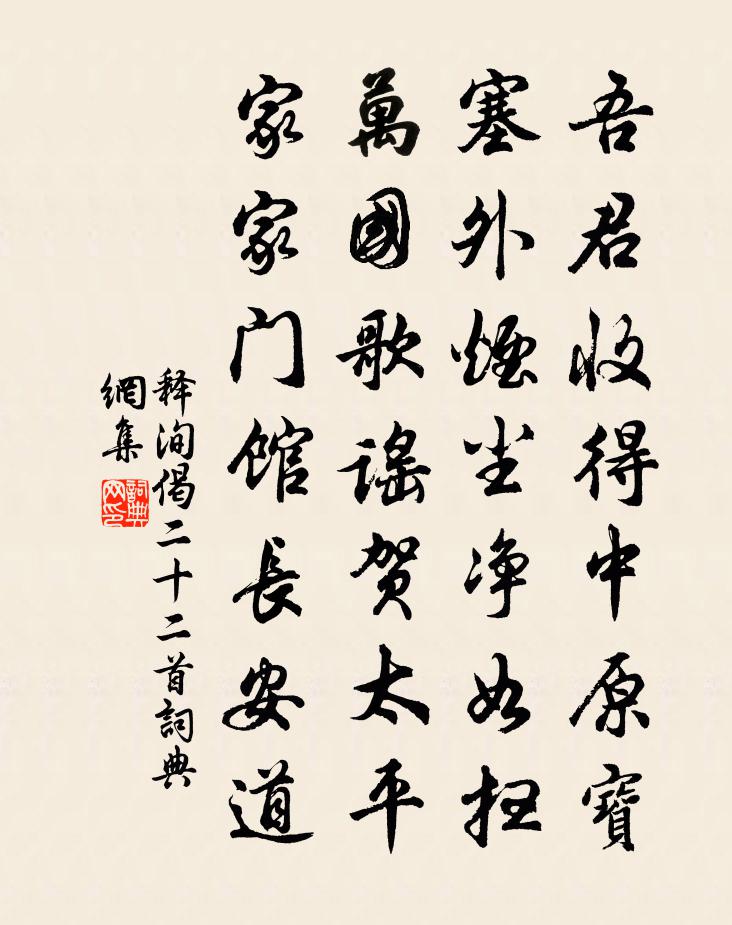 吾君收得中原寶
塞外煙尘净如扫
萬國歌谣贺太平
家家门馆長安道
释洵偈二十二首詞典
網集
詞典
网印